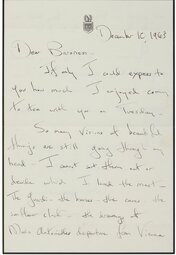 December 10, 1963
Dear Baroness -
If only I could express to
you how much I enjoyed coming
to tea with you on Tuesday.
So many visions of beautiful
things are still going through my
head - I cannot sort them out or
decide which I loved the most -
The Guardi - the horses - the
the drawings of
Marie Antoinette's departure from Vienna